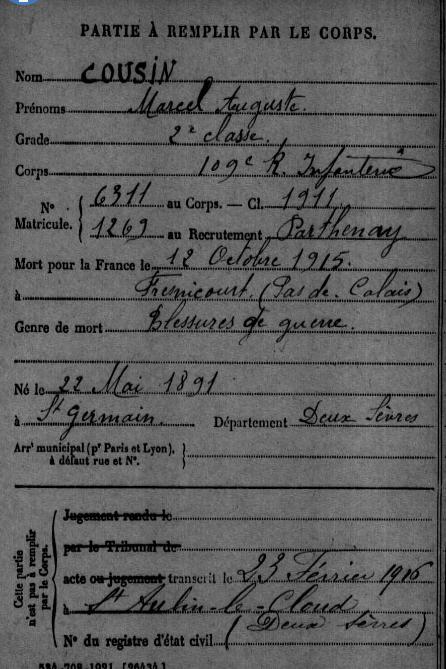 PARTIE À REMPLIR PAR LE CORPS.
Nom COUSIN
Prénoms Marcel Auguste.
Grade 2e classe.
Corps 109e R. Infanterie
N° Matricule. 6311 au Corps. — Cl. 1911
1269 au Recrutement Parthenay
Mort pour la France le 12 Octobre 1915.
à Fresnicourt. (Pas de Calais)
Genre de mort Blessures de guerre.
Né le 22 Mai 1891
à St Germain. Département Deux Sèvres
Arrt municipal (pr Paris et Lyon),
à défaut rue et N°.
Cette partie n'est pas à remplir par le Corps.
Jugement rendu le
par le Tribunal de
acte ou jugement transcrit le 23 Février 1916
à St Aubin-le-Cloud
(Deux Sèvres)
N° du registre d'état civil